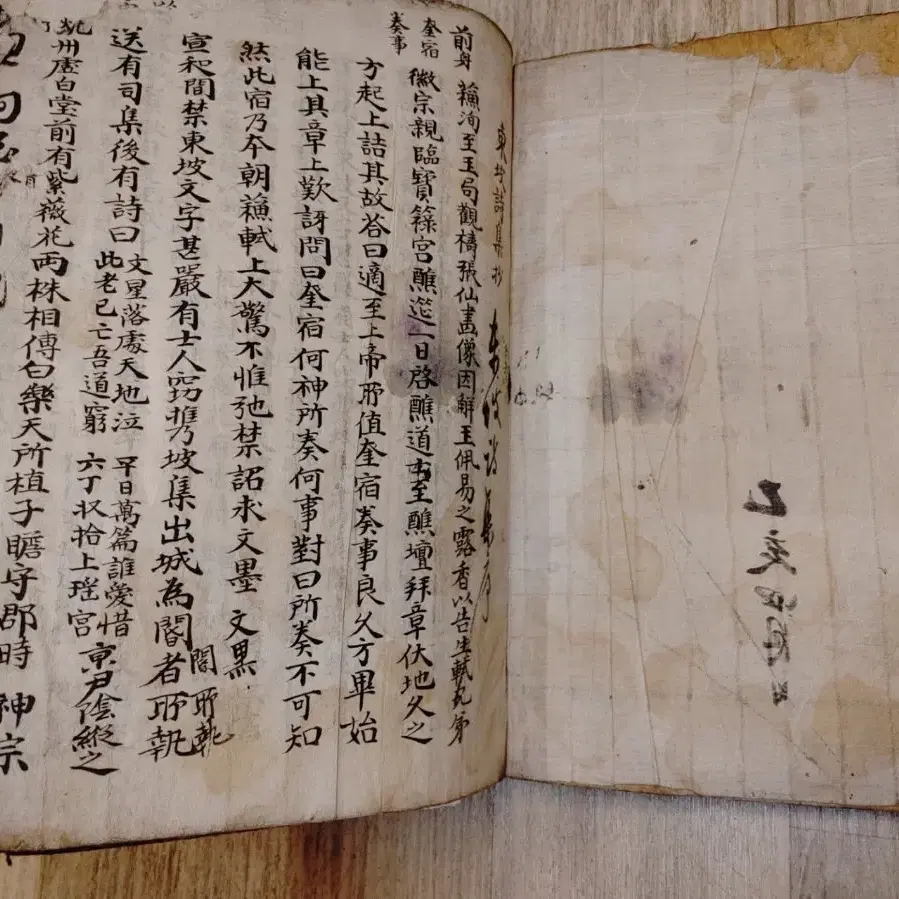 東坡詩集抄
前身 蘓洵至玉局觀禱張仙畫像因解玉佩易之露香以告生軾兄弟
奎宿奏事 徽宗親臨寶籙宮醮筵一日啓醮道士至醮壇拜章伏地久之
方起上詰其故答曰適至上帝所值奎宿奏事良久方畢始
能上其章上歎訝問曰奎宿何神所奏何事對曰所奏不可知
然此宿乃本朝蘓軾上大驚不惟弛禁詔求文墨 文墨
宣和間禁東坡文字甚嚴有士人竊携坡集出城為閽者所執 閽所執
送有司集後有詩曰 文星落處天地泣 此老已亡吾道窮 平日萬篇誰愛惜 六丁收拾上瑤宮 京尹陰縱之
杭州虛白堂前有紫薇花兩株相傳白樂天所植子瞻守郡時 神宗